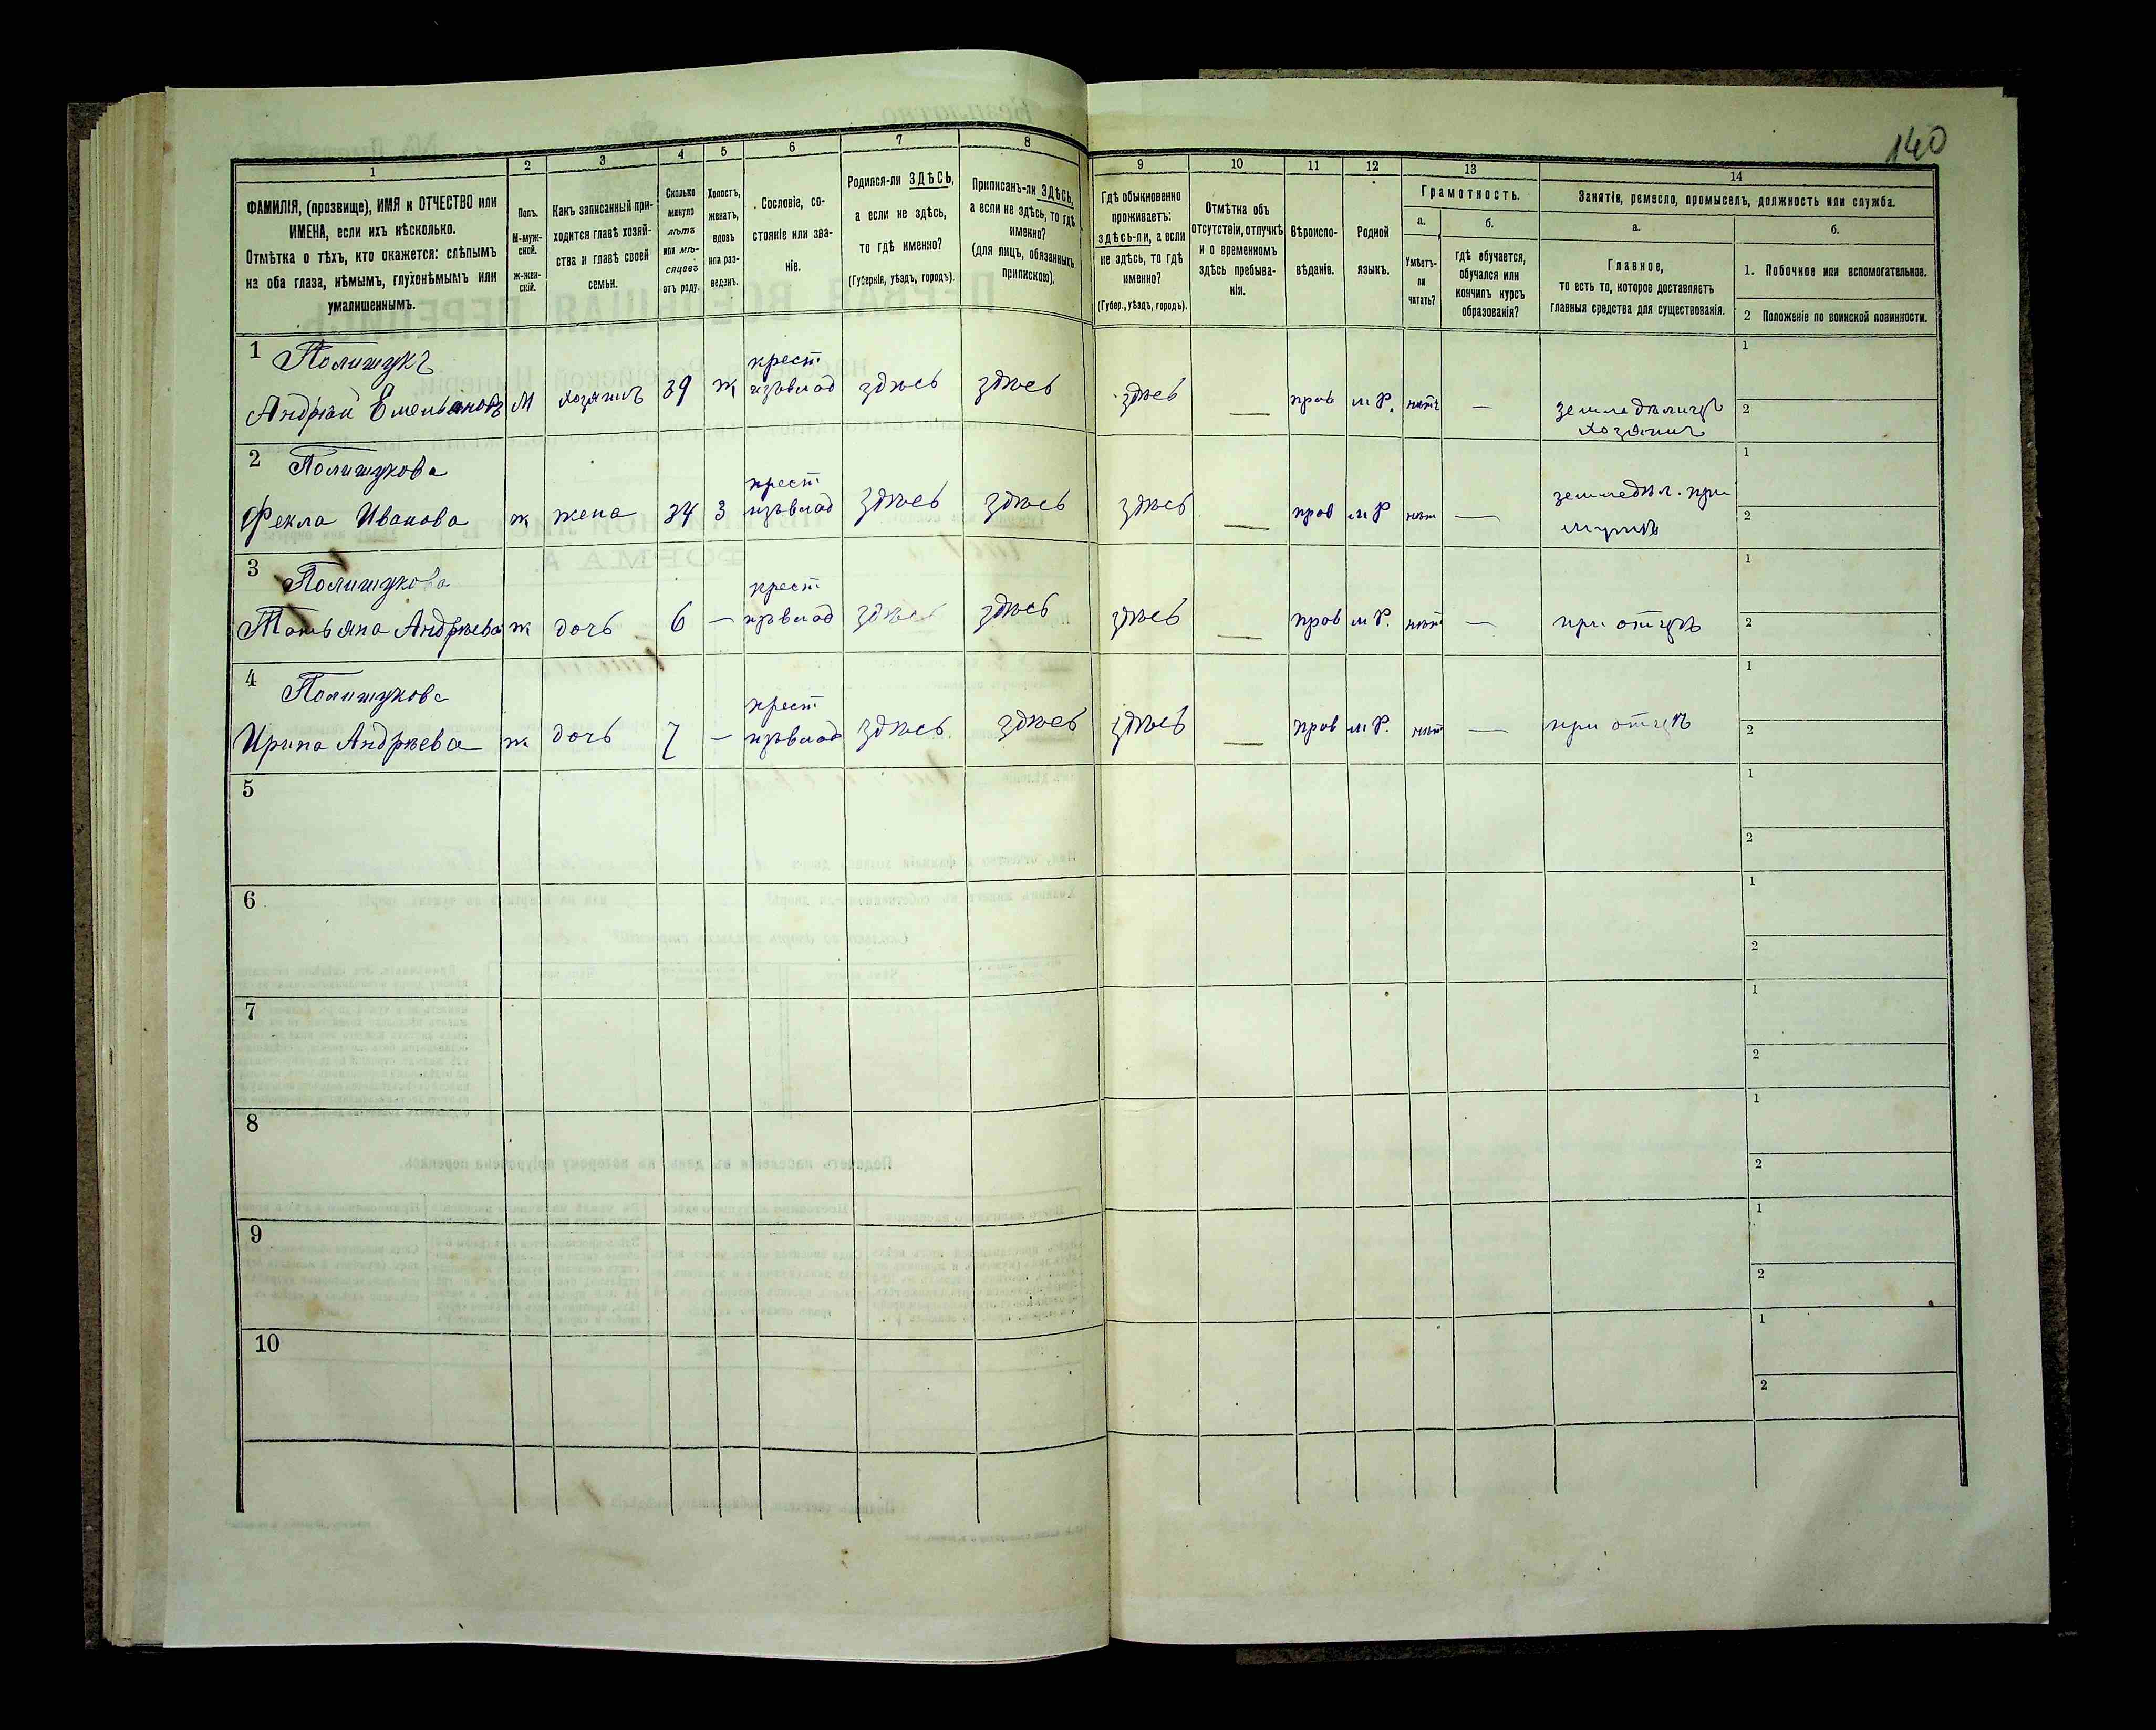 140
1
2
3
4
5
6
7
8
9
10
11
12
13
14
ФАМИЛІЯ, (прозвище), ИМЯ и ОТЧЕСТВО или
ИМЕНА, если ихъ нѣсколько.
Отмѣтка о тѣхъ, кто окажется: слѣпымъ
на оба глаза, нѣмымъ, глухонѣмымъ или
умалишеннымъ.
Полъ.
М-муж-
ской.
Ж-жен-
скій.
Какъ записанный при-
ходится главѣ хозяй-
ства и главѣ своей
семьи.
Сколько
минуло
лѣтъ
или мѣ-
сяцевъ
отъ роду.
Холостъ,
женатъ,
вдовъ
или раз-
веденъ.
Сословіе, со-
стояніе или зва-
ніе.
Родился-ли ЗДѢСЬ,
а если не здѣсь,
то гдѣ именно?
(Губернія, уѣздъ, городъ).
Приписанъ-ли ЗДѢСЬ,
а если не здѣсь, то гдѣ
именно?
(для лицъ, обязанныхъ
припискою).
Гдѣ обыкновенно
проживаетъ:
здѣсь-ли, а если
не здѣсь, то гдѣ
именно?
(Губер., уѣздъ, городъ).
Отмѣтка объ
отсутствіи, отлучкѣ
и о временномъ
здѣсь пребыва-
ніи.
Вѣроиспо-
вѣданіе.
Родной
языкъ.
Грамотность.
а.
Умѣетъ-
ли
читать?
б.
гдѣ обучается,
обучался или
кончилъ курсъ
образованія?
Занятія, ремесло, промыселъ, должность или служба.
а.
Главное,
то есть то, которое доставляетъ
главныя средства для существованія.
б.
1. Побочное или вспомогательное.
2 Положеніе по воинской повинности.
1 Полищукъ
Андрей Емельяновъ М хозяинъ 39 ж крест
изъ влад здѣсь здѣсь здѣсь — прав м Р. нѣтъ — земледѣлецъ
хозяинъ
1
2
2 Полищукова
Фекла Иванова ж жена 34 З крест
изъ влад здѣсь здѣсь здѣсь — прав м Р нѣт — земледѣл. при
мужѣ
1
2
3 Полищукова
Татьяна Андрѣева ж дочь 6 — крест
изъ влад здѣсь здѣсь здѣсь — прав м Р. нѣт — при отцѣ
1
2
4 Полищукова
Ирина Андрѣева ж дочь — крест
изъ влад здѣсь здѣсь здѣсь — прав м Р. нѣт — при отцѣ
1
2
5
1
2
6
1
2
7
1
2
8
1
2
9
1
2
10
1
2